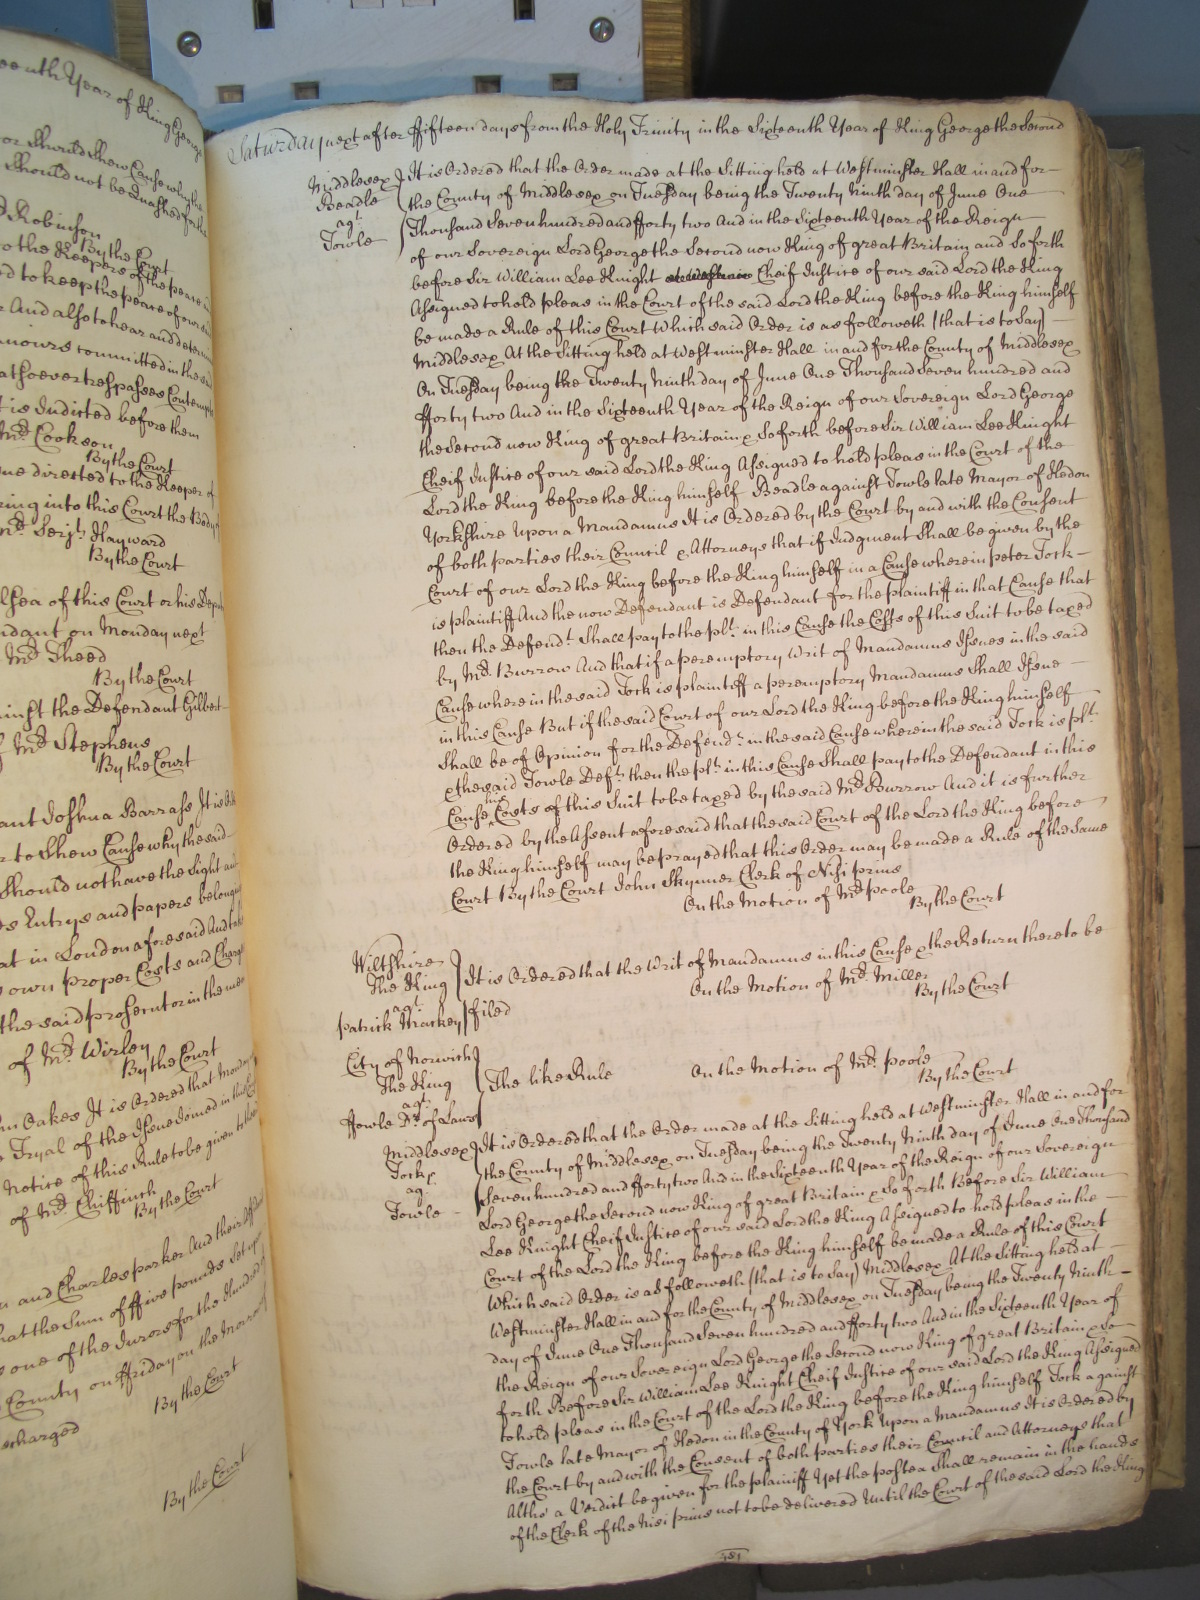 eenth Year of King George
or Should Shew Cause why the
Should not be Quashed for the
d Robinson
By the Court
o the Keepers of the peace in
d to keep the peace of our said
r And also to hear and determ
anours committed in the said
atsoever trespasses Contempts
t is Indicted before them
Mr. Cookson
By the Court
me directed to the Keeper of
ring into this Court the Body
Mr. Serjt. Hayward
By the Court
lsea of this Court or his Depu
ndant on Monday next
Mr. Theed
By the Court
ainst the Defendant Gilbert
f Mr. Stephens
By the Court
ant Joshua Barrass It is
r to Shew Cause why the said
Should not have the Sight and
s Entrys and papers belong
at in London aforesaid And take
s own proper Costs and Charges
the said prosecutor in the mean
of Mr. Wirley
By the Court
hn Oakes It is Ordered that Monday
e Tryal of the Issue Joined in this
notice of this Rule to be given to the
of Mr. Chiffinch
By the Court
n and Charles parker And their
hat the Sum of ffive pounds Set upon
s one of the Jurors for the Hundred of
County on ffriday on the Morrow of
By the Court
scharged
By the Court
Saturday next after ffifteen days from the Holy Trinity in the Sixteenth Year of King George the Second
Middlesex
Beadle
agt.
Towle
It is Ordered that the Order made at the Sitting held at Westminster Hall in and for
the County of Middlesex on Tuesday being the Twenty Ninth day of June One
Thousand Seven hundred and fforty two And in the Sixteenth Year of the Reign
of our Sovereign Lord George the Second now King of great Britain and So forth
before Sir William Lee Knight Cheif Justice of our said Lord the King
Assigned to hold pleas in the Court of the said Lord the King before the King himself
be made a Rule of this Court Which said Order is as followeth (that is to Say)
Middlesex At the Sitting held at Westminster Hall in and for the County of Middlesex
On Tuesday being the Twenty Ninth day of June One Thousand Seven hundred and
fforty two And in the Sixteenth Year of the Reign of our Sovereign Lord George
the Second now King of great Britain & So forth before Sir William Lee Knight
Cheif Justice of our said Lord the King Assigned to hold pleas in the Court of the
Lord the King before the King himself Beadle against Towle late Mayor of Hedon
Yorkshire Upon a Mandamus It is Ordered by the Court by and with the Consent
of both parties their Council & Attorneys that if Judgment Shall be given by the
Court of our Lord the King before the King himself in a Cause wherein peter Tock
is plaintiff And the now Defendant is Defendant for the plaintiff in that Cause that
then the Defendt. Shall pay to the plt. in this Cause the Costs of this Suit to be taxed
by Mr. Burrow And that if a peremptory Writ of Mandamus Issues in the said
Cause wherein the said Tock is plaintiff a peremptory Mandamus Shall Issue
in this Cause But if the said Court of our Lord the King before the King himself
Shall be of Opinion for the Defendt. in the said Cause wherein the said Tock is plt.
& the said Towle Deft. then the plt. in this Cause Shall pay to the Defendant in this
Cause his Costs of this Suit to be taxed by the said Mr. Burrow And it is further
Ordered by the Assent aforesaid that the said Court of the Lord the King before
the King himself may be prayed that this Order may be made a Rule of the Same
Court By the Court John Skynner Clerk of Nisi prius
On the Motion of Mr. poole
By the Court
Wiltshire
The King
agt.
patrick Mackey
It is Ordered that the Writ of Mandamus in this Cause & the Return thereto be
filed
On the Motion of Mr. Miller
By the Court
City of Norwich
The King
agt.
ffowle Dr. of Laws
The like Rule
On the Motion of Mr. poole
By the Court
Middlesex
Tock
agt.
Towle
It is Ordered that the Order made at the Sitting held at Westminster Hall in and for
the County of Middlesex on Tuesday being the Twenty Ninth day of June One Thousand
Seven hundred and fforty two And in the Sixteenth Year of the Reign of our Sovereign
Lord George the Second now King of great Britain & So forth Before Sir William
Lee Knight Cheif Justice of our said Lord the King Assigned to hold pleas in the
Court of the Lord the King before the King himself be made a Rule of this Court
Which said Order is as followeth (that is to Say) Middlesex At the Sitting held at
Westminster Hall in and for the County of Middlesex on Tuesday being the Twenty Ninth
day of June One Thousand Seven hundred and fforty two And in the Sixteenth Year of
the Reign of our Sovereign Lord George the Second now King of great Britain & So
forth Before Sir William Lee Knight Cheif Justice of our said Lord the King Assigned
to hold pleas in the Court of the Lord the King before the King himself Tock against
Towle late Mayor of Hedon in the County of York Upon a Mandamus It is Ordered by
the Court by and with the Consent of both parties their Council and Attorneys that
Altho' a Verdict be given for the plaintiff Yet the postea Shall remain in the hands
of the Clerk of the Nisi prius not to be delivered Until the Court of the said Lord the King